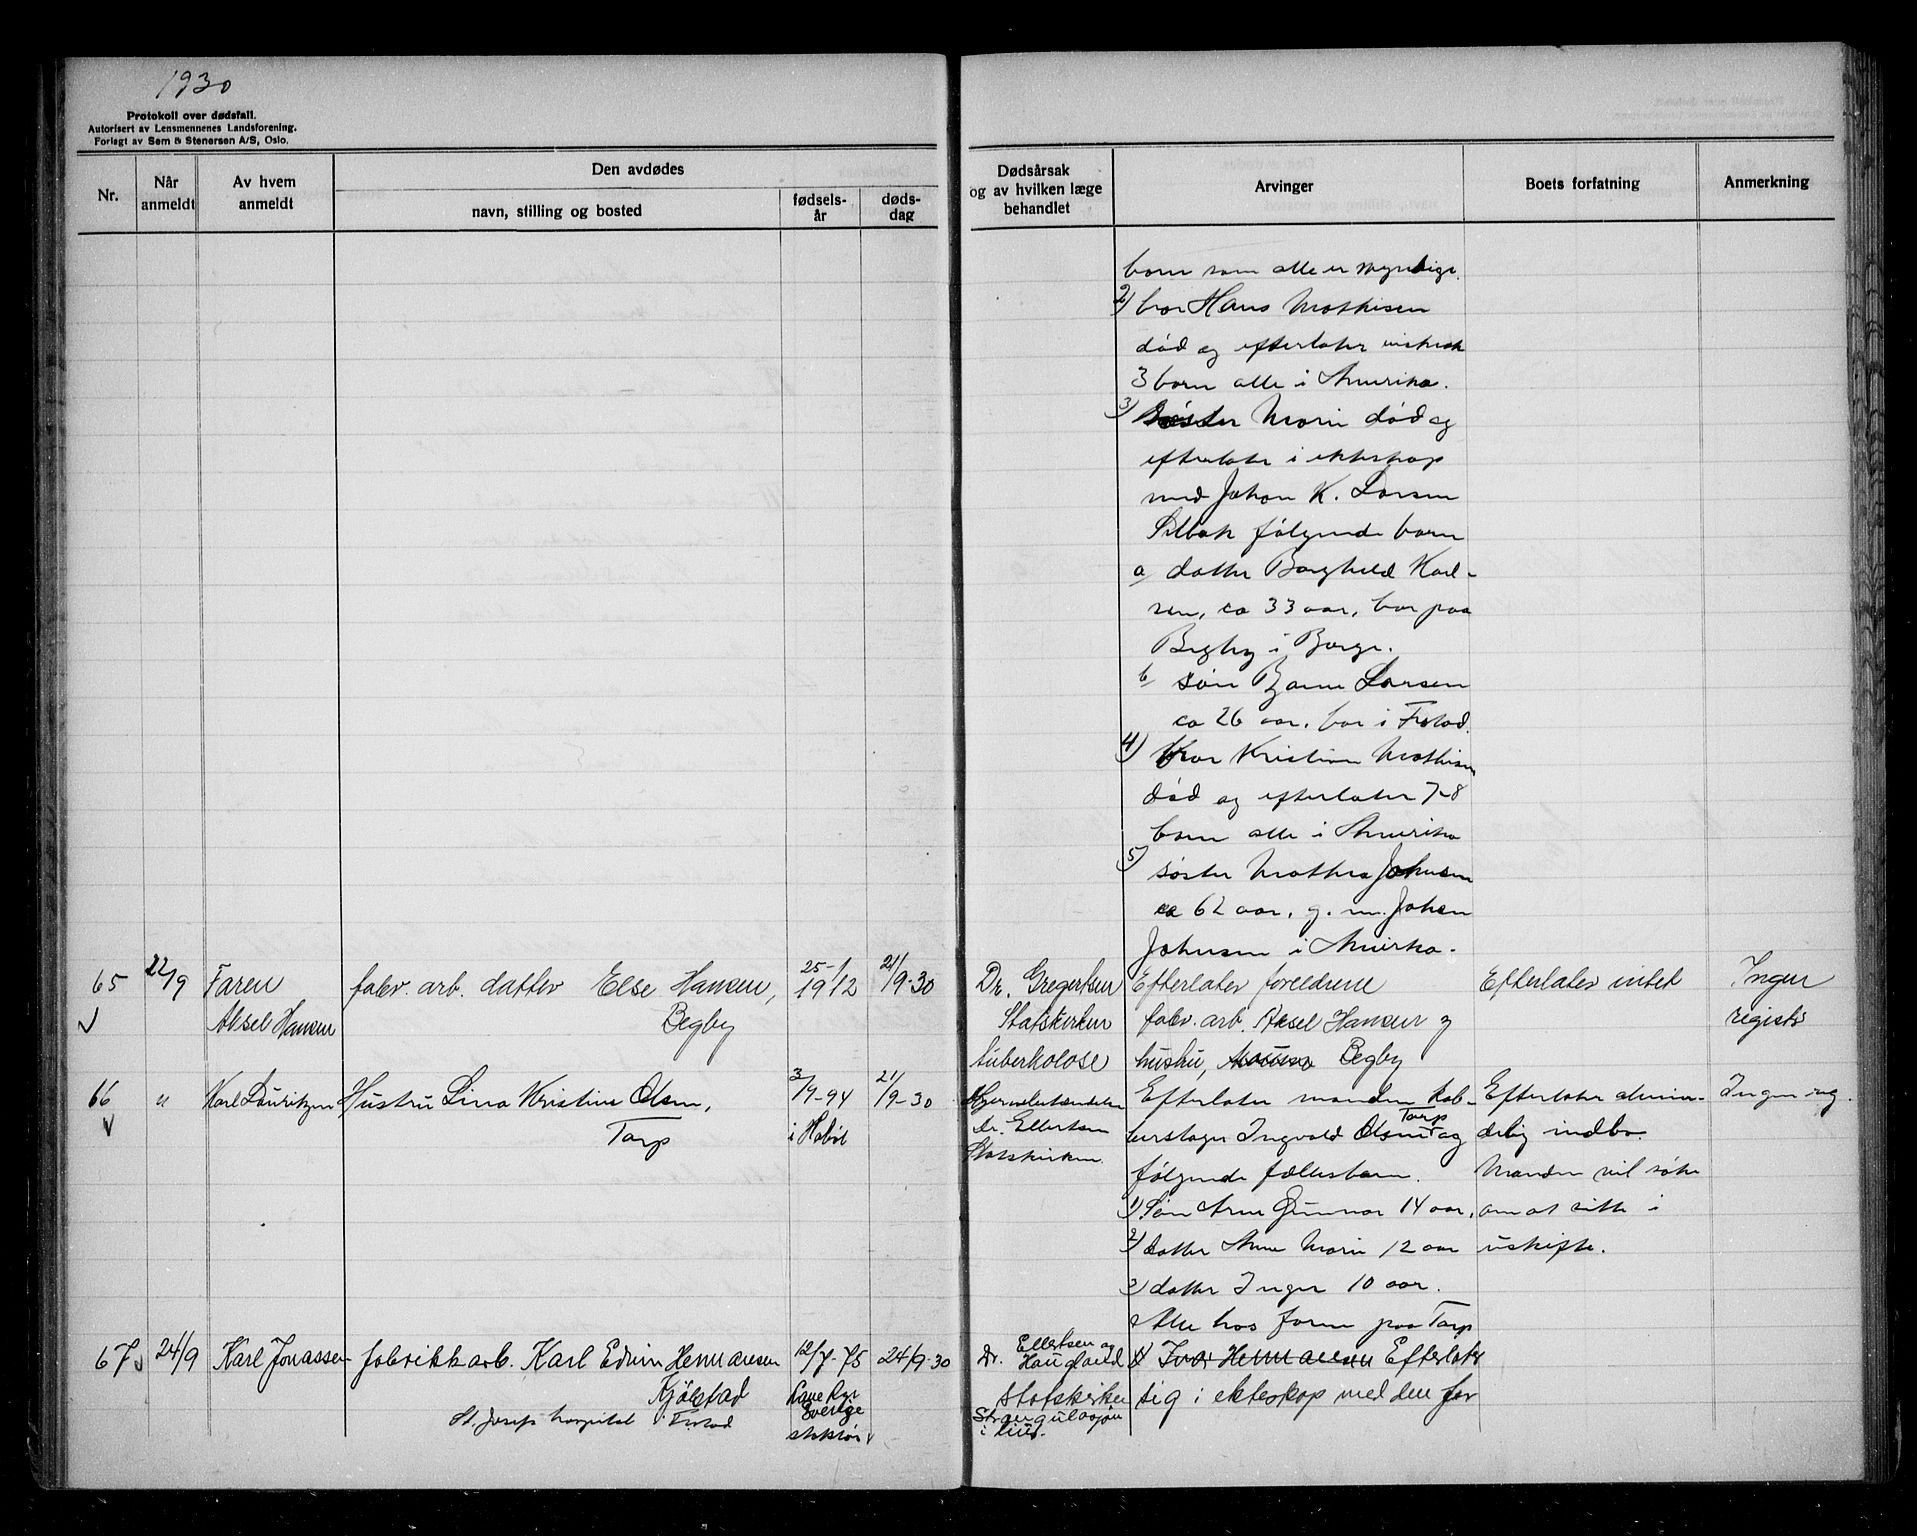 1930
Protokoll over dødsfall.
Autorisert av Lensmennenes Landsforening.
Forlagt av Sem & Stenersen A/S, Oslo.
Nr.
Når anmeldt
Av hvem anmeldt
Den avdødes
navn, stilling og bosted
fødsels-år
døds-dag
Dødsårsak og av hvilken læge behandlet
Arvinger
Boets forfatning
Anmerkning
born som alle er myndige.
2) bror Hans Mathisen
død og efterlater
3 born alle i Amerika.
3) søster Marie død og
efterlater i ekteskap
med Johan K. Larsen
Selbak følgende born
a) datter Borghild Karl-
sen, ca 33 aar, bor paa
Begby i Borge.
b) søn Bjarne Larsen
ca 26 aar, bor i Frstad.
4) bror Kristian Mathisen
død og efterlater 7-8
born alle i Amerika
5) søster Mathea Johnsen
ca 62 aar, g. m. Johan
Johnsen i Amerika.
65 22/9 Faren fabr. arb. datter Else Hansen, 25-/1912 21/9-30 Dr. Gregertsen Efterlater foreldrene Efterlater intet Ingen
Aksel Hansen Begby Statskirken fabr. arb. Aksel Hansen og registr
tuberkolose hustru, Begby
66 " Karl Lauritzen Hustru Lina Kristine Olsen, 3/9-94 21/9-30 Hjernebetændelse Efterlater manden kob- Efterlater alminde- Ingen reg.
Tarp i Hobøl Dr. Ellertsen berslager Ingvald Olsen Tarp og delig indbo.
Statskirken. følgende fællesbarn. Manden vil søke
1) Søn Arne Gunnar 14 aar, om at sitte i
2) datter Anne Marie 12 aar uskifte.
3) datter Inger 10 aar.
Alle hos faren paa Tarp
67 24/9 Karl Jonassen fabrikkarb. Karl Edvin Hermansen 12/7-75 24/9-30 Dr. Ellertsen og Haugland 1) Ivar Hermansen Efterlater
Kjølstad Sverige Statskirken sig i ekteskap med den før
St. Josefs hospital i Frstad Strangulasjon
i